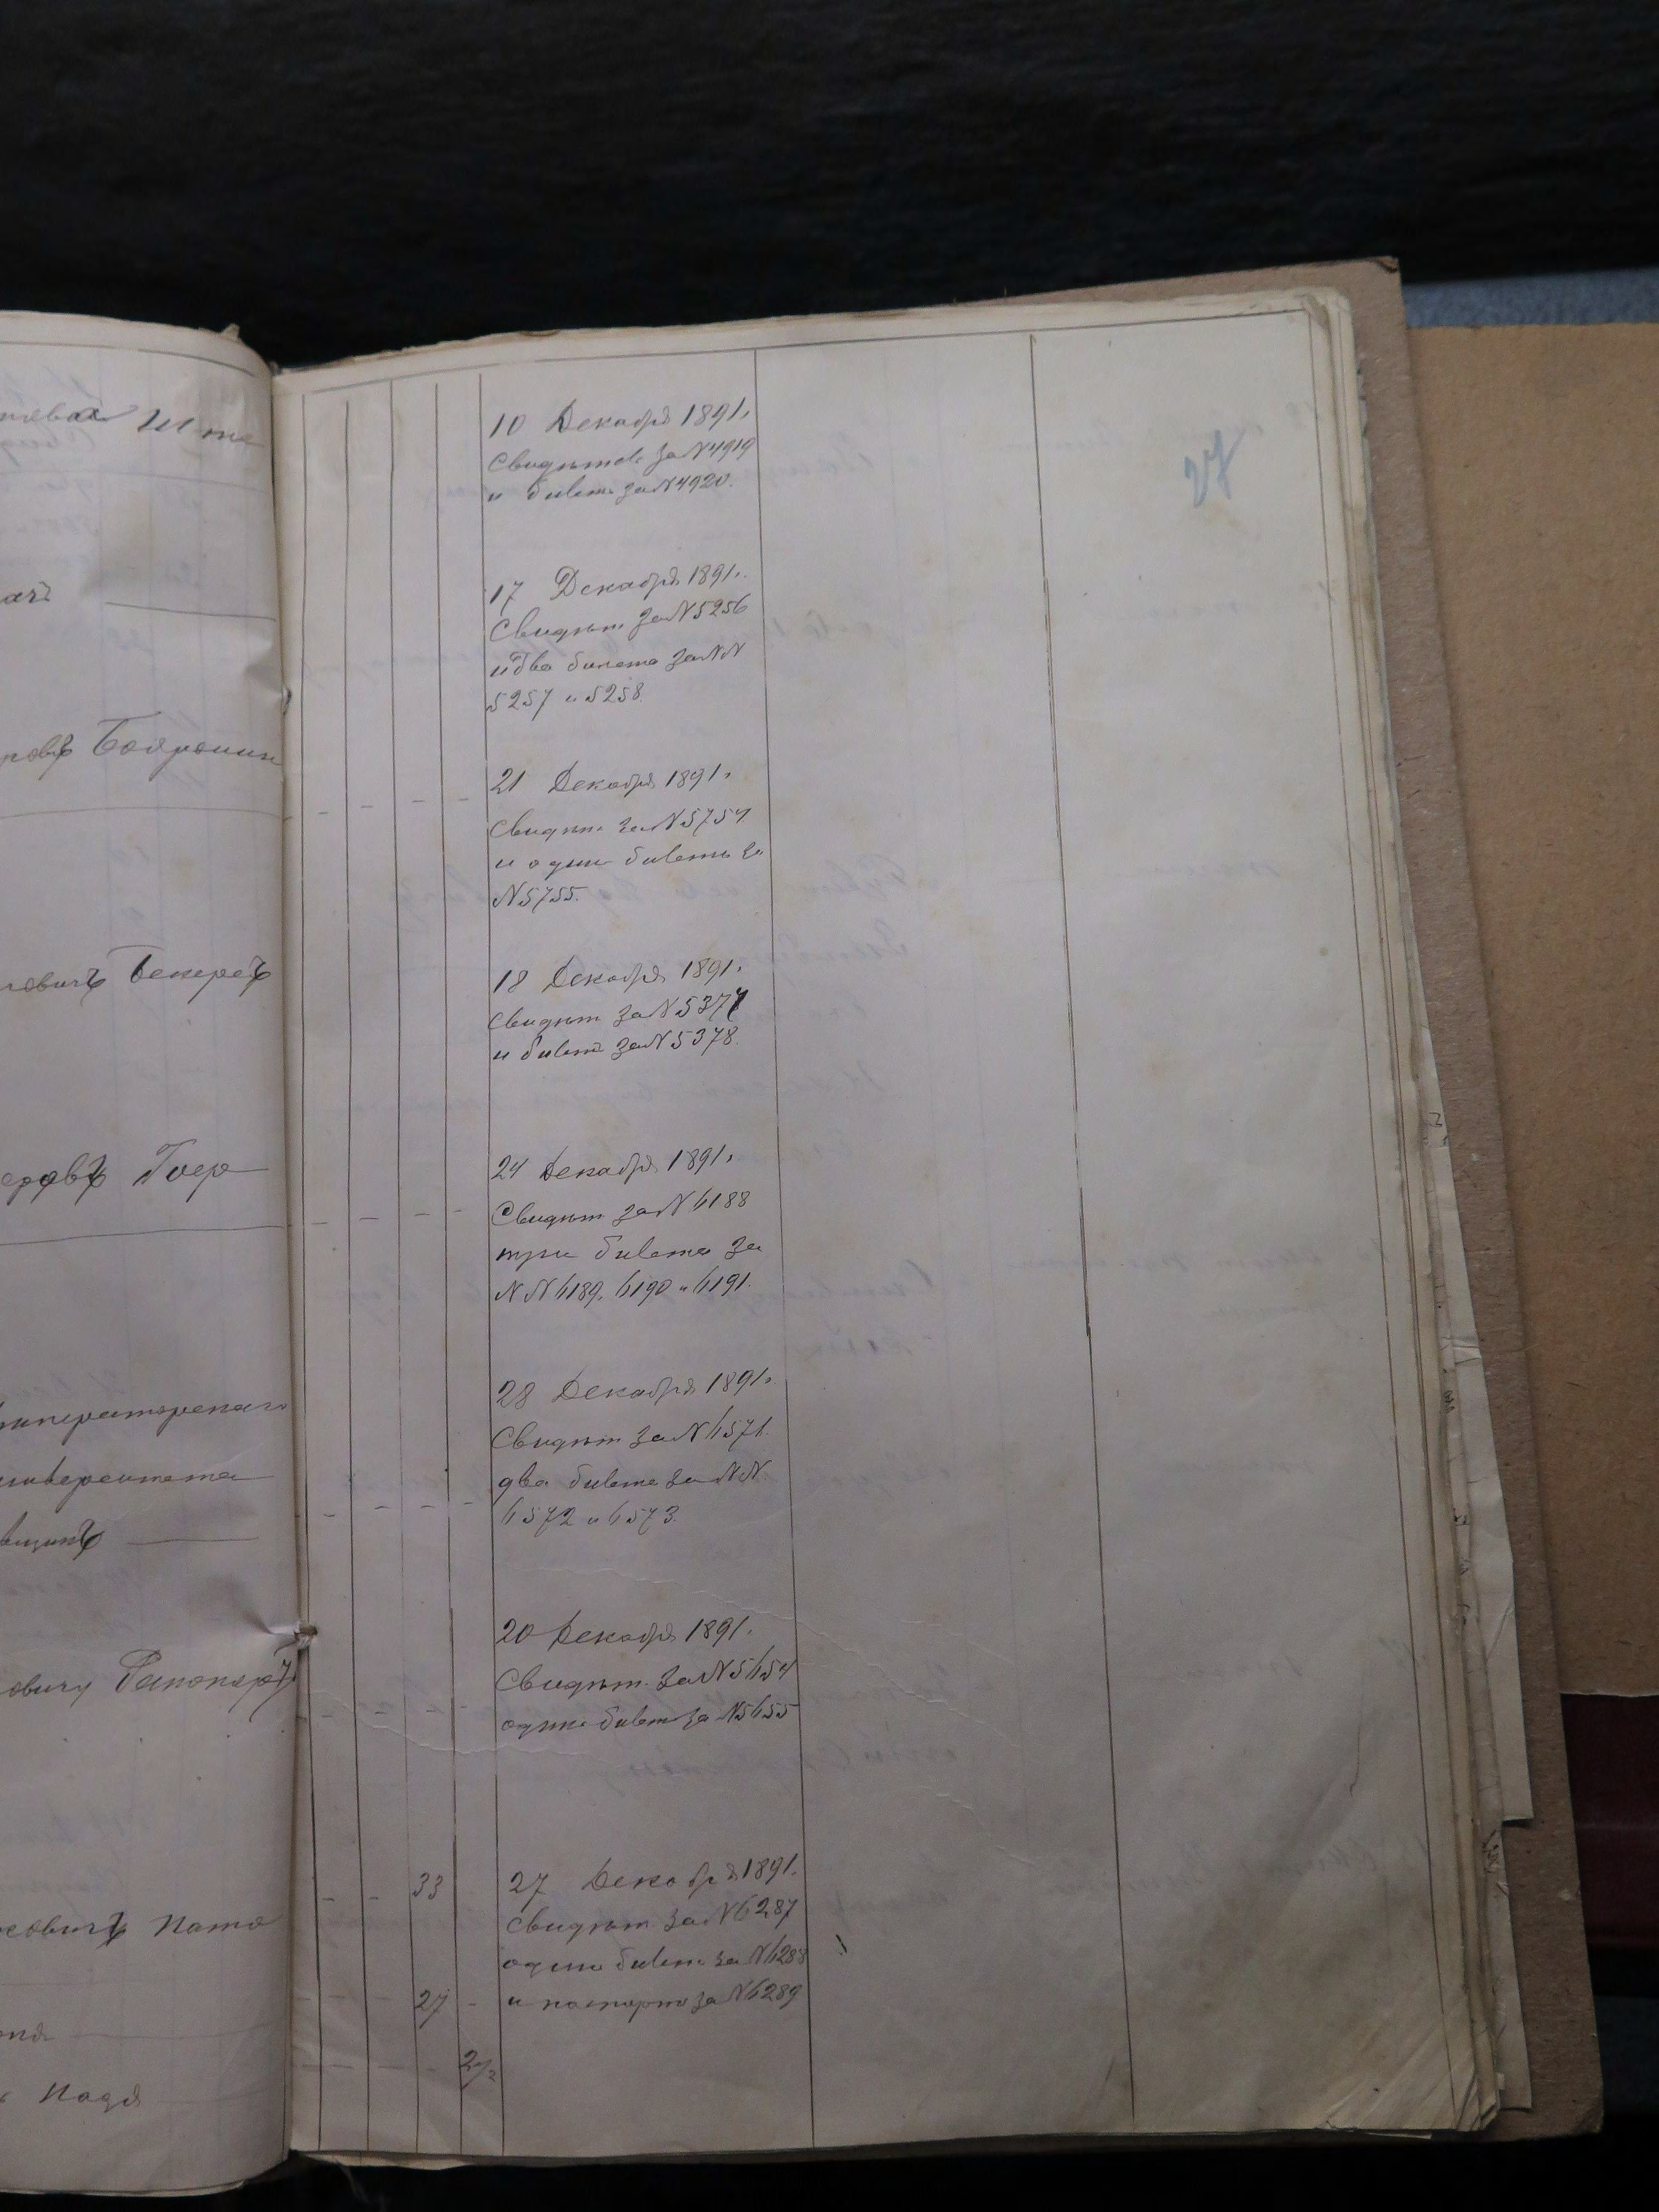 Шта
ачъ
Боярский
Бекеръ
Гоер
Императорскаго
университета
овичу Рапопортъ
овичъ Пато
Надя
27
10 Декабря 1891.
Свидѣтел за № 4919
и билет за № 4920.
17 Декабря 1891.
Свидѣт за № 5256
и два билета за №№
5257 и 5258.
21 Декабря 1891.
Свидѣт за № 5754
и один билетъ за
№ 5755.
18 Декабря 1891.
Свидѣт за № 5377
и билет за № 5378.
24 Декабря 1891.
Свидѣт за № 6188
три билета за
№№ 6189, 6190 и 6191.
28 Декабря 1891.
Свидѣт за № 6571.
два билета за №№
6572 и 6573.
20 Декабря 1891.
Свидѣт. за № 5654
один билет за № 5655
33 27 Декабря 1891.
Свидѣт. за № 6287
один билет за № 6288
27 и паспорт за № 6289
2/12